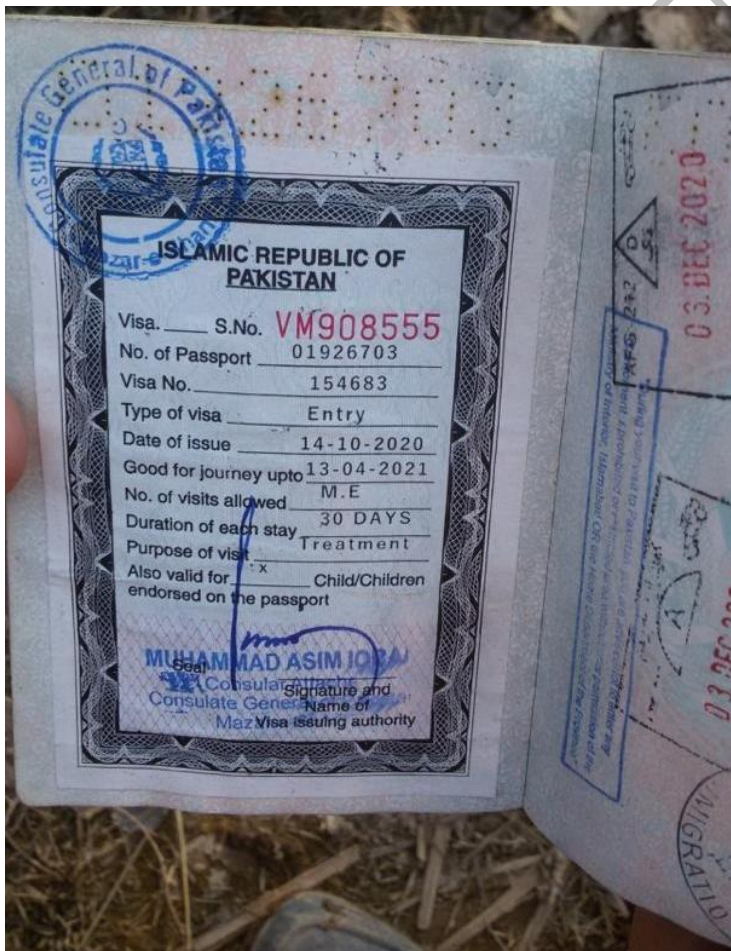 Consulate General of Pakistan
ISLAMIC REPUBLIC OF
PAKISTAN
Visa. ____ S.No. VM908555
No. of Passport 01926703
Visa No. 154683
Type of visa Entry
Date of issue 14-10-2020
Good for journey upto 13-04-2021
No. of visits allowed M.E
Duration of each stay 30 DAYS
Purpose of visit Treatment
Also valid for x Child/Children
endorsed on the passport
MUHAMMAD ASIM IQBAL
Seal
Consular Attache
Signature and
Consulate General
Name of
Visa issuing authority
03 DEC 2020
03 DEC